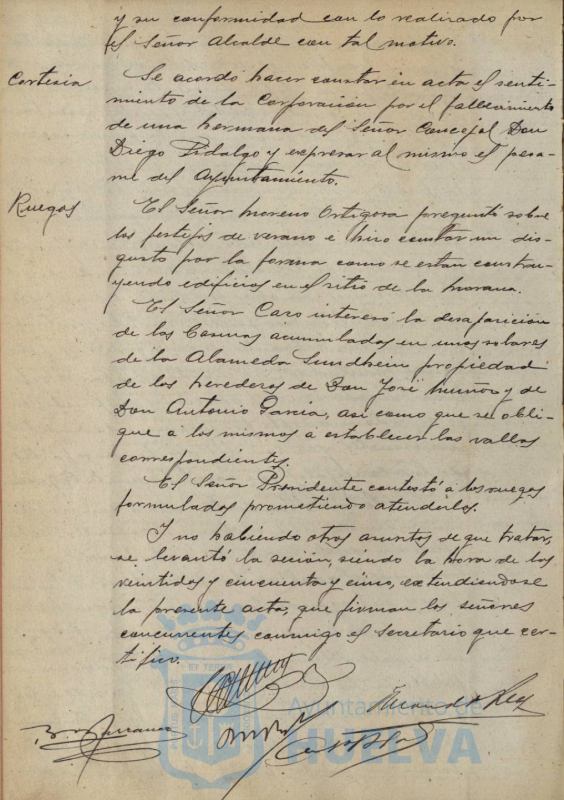 y su conformidad con lo realizado por
el Señor Alcalde con tal motivo.
Cortesia
Se acordó hacer constar en acta el senti-
miento de la Corporacion por el fallecimiento
de una hermana del Señor Concejal Don
Diego Fidalgo y expresar al mismo el pesa-
me del Ayuntamiento.
Ruegos
El Señor Moreno Ortigosa preguntó sobre
los festejos de verano é hizo constar un dis-
gusto por la forma como se estan constru-
yendo edificios en el sitio de la Morana.
El Señor Caso interesó la desaparición
de las basuras acumuladas en unos solares
de la Alameda Sundhein propiedad
de los herederos de Don José Muñoz y de
Don Antonio Garcia, asi como que se obli-
gue á los mismos á establecer las vallas
correspondientes.
El Señor Presidente contestó a los ruegos
formulados prometiendo atenderlos.
Y no habiendo otros asuntos de que tratar,
se levantó la sesión, siendo la hora de las
veintidos y cincuenta y cinco, extendiendose
la presente acta, que firman los señores
concurrentes conmigo el secretario que cer-
tifico.
Ayuntamiento de
HUELVA